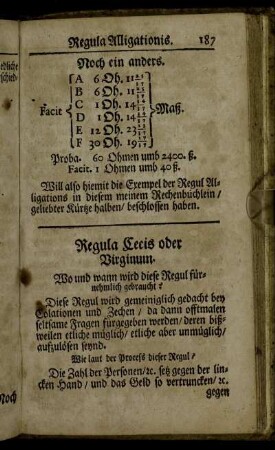 Regula Alligationis. 187
Noch ein anders.
A 6 Oh. 11
B 6 Oh. 11
C 1 Oh. 14
Facit Maß.
D 1 Oh. 14
E 12 Oh. 23
F 30 Oh. 19
Proba. 60 Ohmen umb 2400. ß.
Facit. 1 Ohmen umb 40 ß.
Will also hiemit die Exempel der Regul Al-
ligations in diesem meinem Rechenbüchlein /
geliebter Kürtze halben / beschlossen haben.
Regula Cecis oder
Virginum.
Wo und wann wird diese Regul für-
nehmlich gebraucht?
Diese Regul wird gemeiniglich gedacht bey
Colationen und Zechen / da dann offtmalen
seltsame Fragen fürgegeben werden / deren biß-
weilen etliche müglich / etliche aber unmüglich /
auffzulösen seynd.
Wie laut der Process dieser Regul?
Die Zahl der Personen / ꝛc. setz gegen der lin-
cken Hand / und das Geld so vertruncken / ꝛc.
gegen